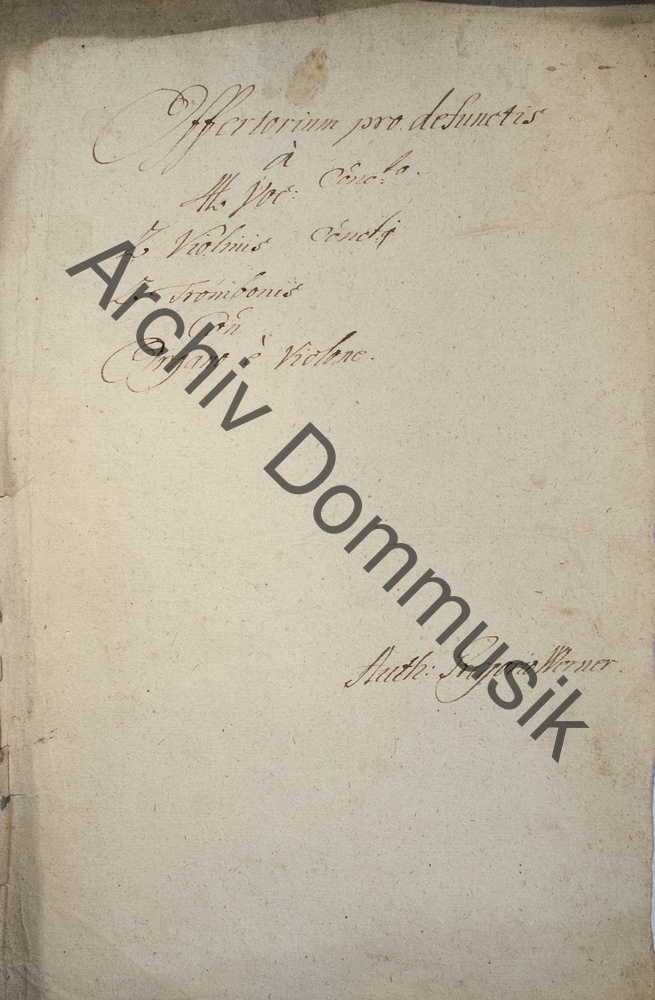 Offertorium pro defunctis
à
4 Voc: Conc:to.
2 Violinis Conc:ti
2 Trombonis
Con
Organo è Violone.
Auth: Gregorio Werner.
Archiv Dommusik